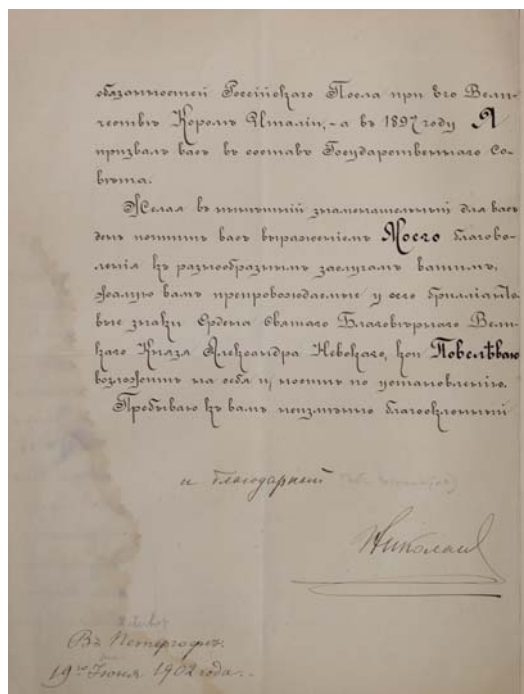 обязанностей Россiйскаго Посла при Его Вели-
чествѣ Королѣ Италiи, - а въ 1897 году Я
призвалъ васъ въ составъ Государственнаго Со-
вѣта.
Желая въ нынѣшнiй знаменательный для васъ
день почтить васъ выраженiемъ Моего благово-
ленiя къ разнообразнымъ заслугамъ вашимъ,
жалую вамъ препровождаемые у сего брилліанто-
вые знаки Ордена Святаго Благовѣрнаго Вели-
каго Князя Александра Невскаго, кои Повелѣваю
возложить на себя и носить по установленiю.
Пребываю къ вамъ неизмѣнно благосклонный
и благодарный
Николай
Въ Петергофѣ.
19го Iюня 1902 года.